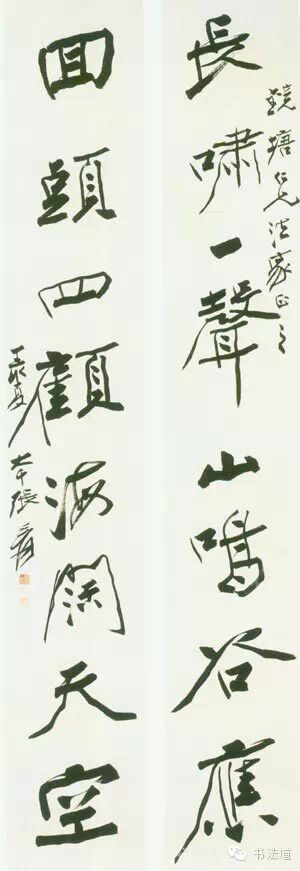 鏡塘仁兄法家正之
長嘯一聲山鳴谷應
回頭四顧海闊天空
大千張爰
书法道